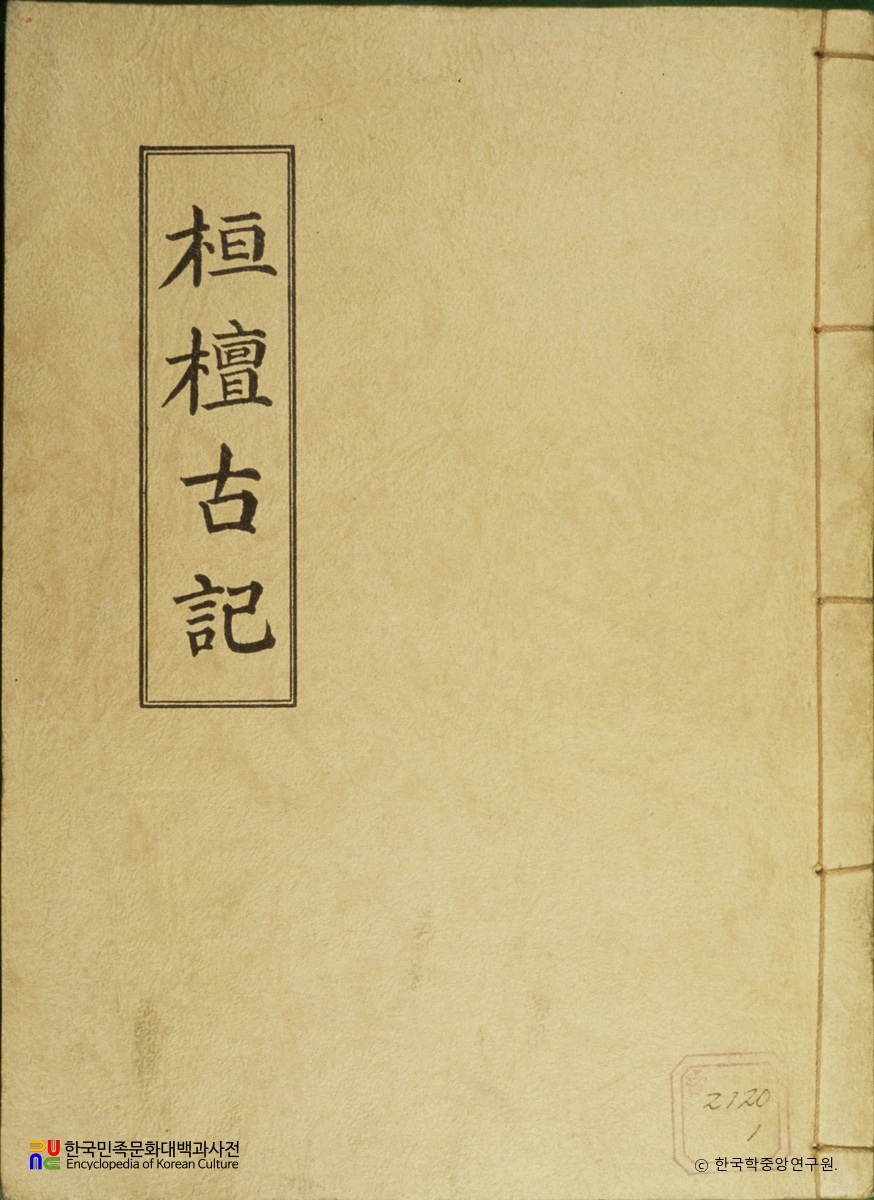 桓檀古記
2720
1
한국민족문화대백과사전
Encyclopedia of Korean Culture
© 한국학중앙연구원.